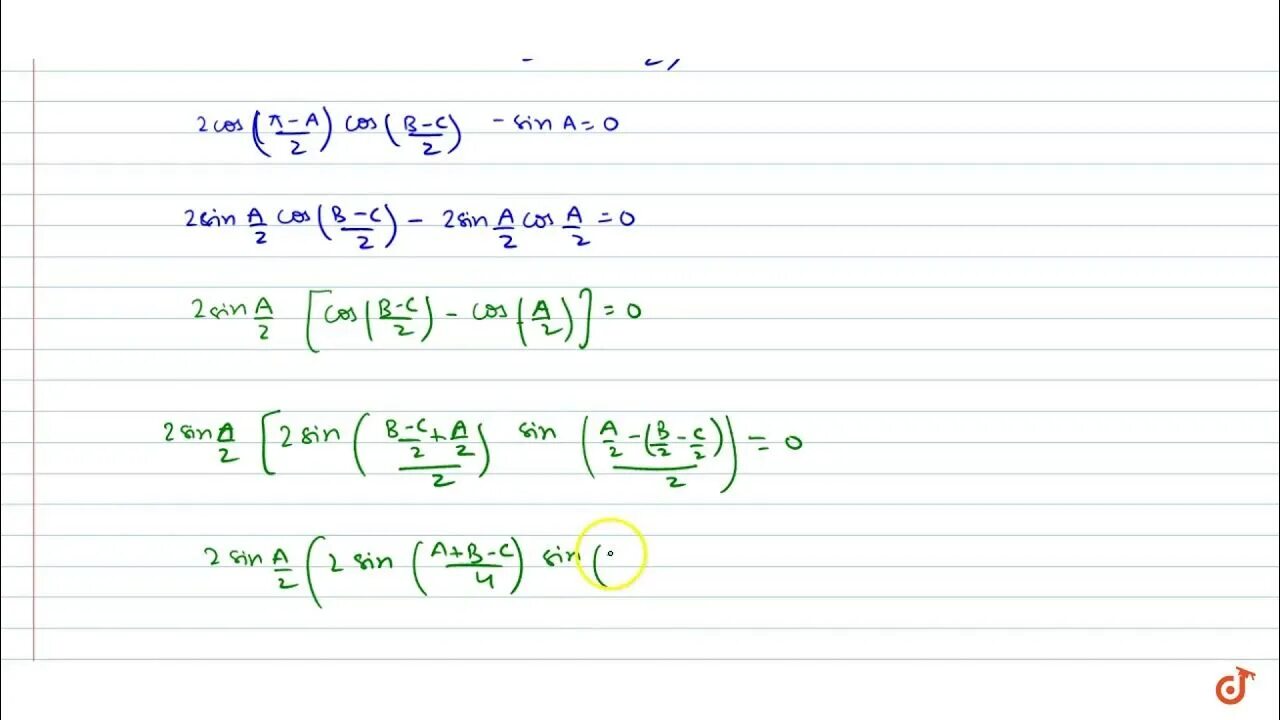 2cos((π-A)/2) cos((B-C)/2) - sin A = 0
2sin A/2 cos((B-C)/2) - 2sin A/2 cos A/2 = 0
2sin A/2 [cos((B-C)/2) - cos(A/2)] = 0
2sin A/2 [2sin(((B-C)/2 + A/2)/2) sin((A/2 - (B/2 - C/2))/2)) = 0
2sin A/2 (2 sin((A+B-C)/4) sin(